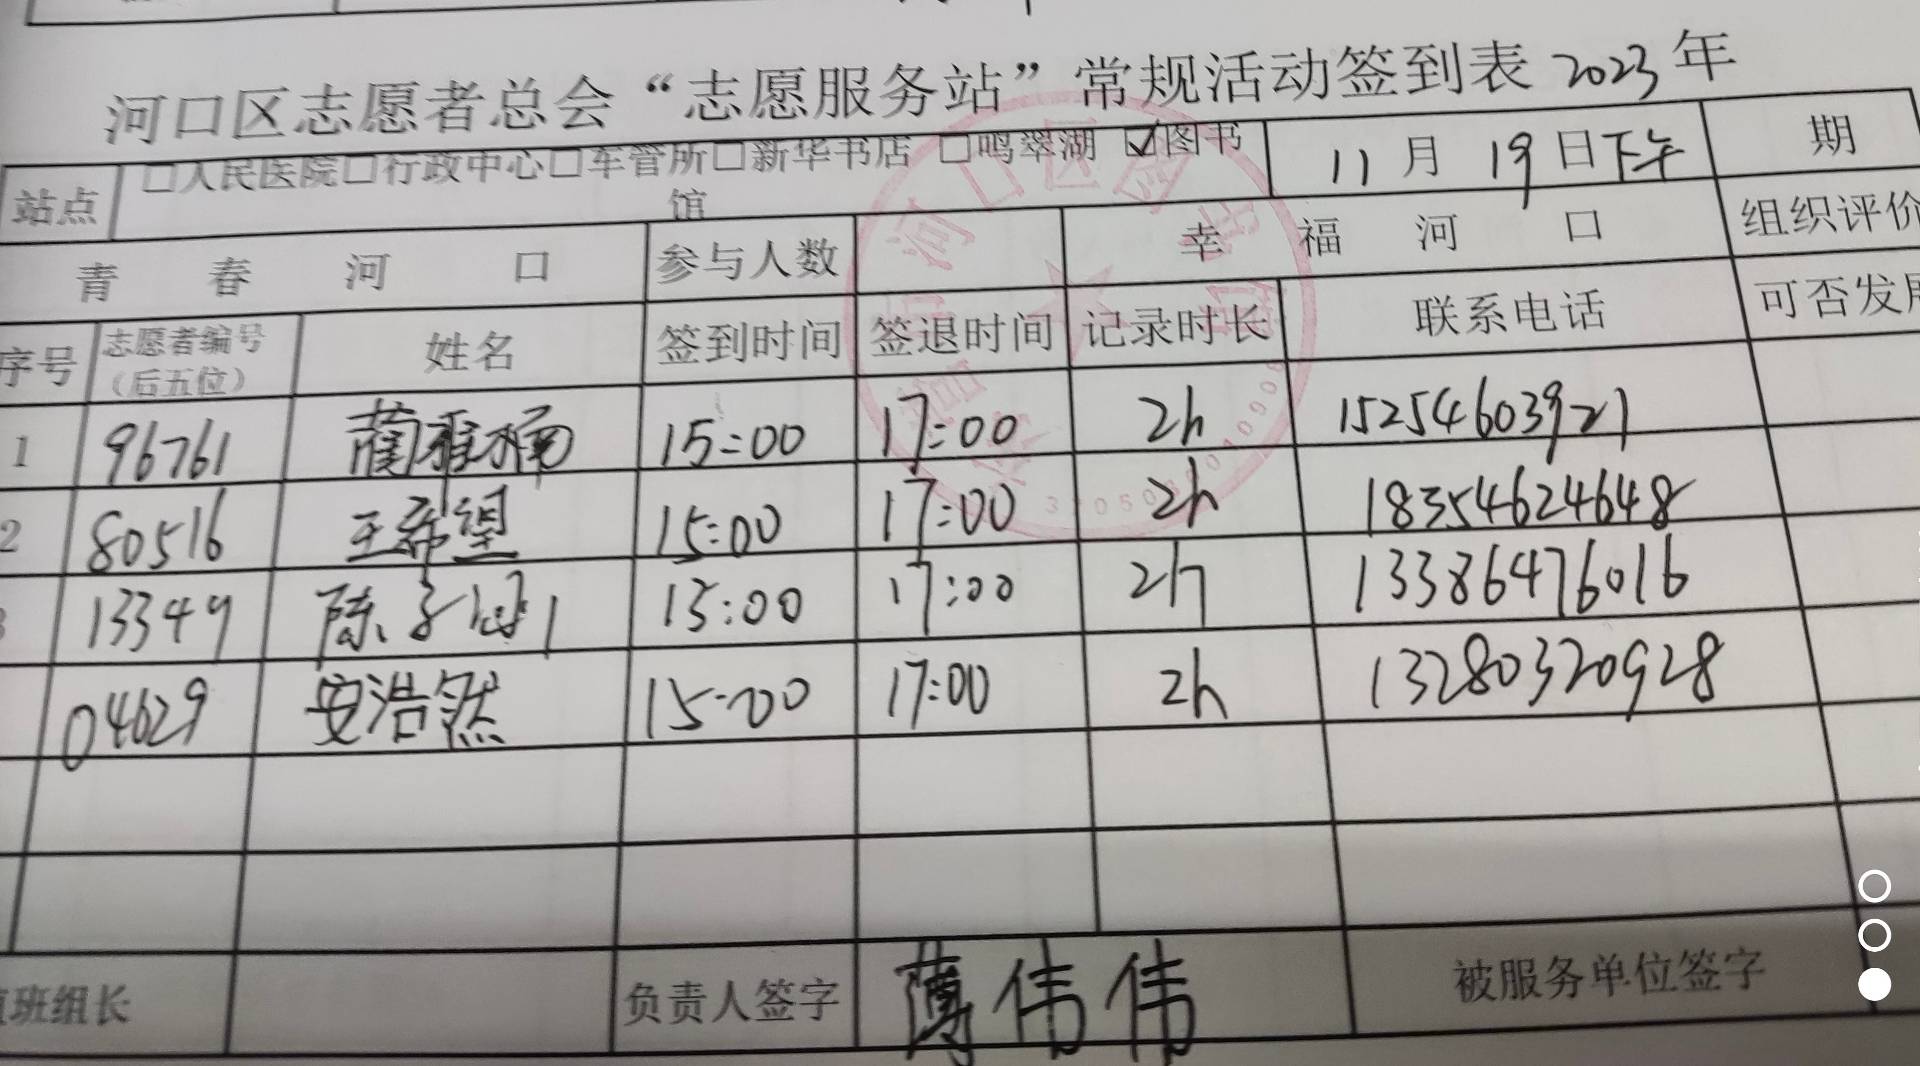 河口区志愿者总会“志愿服务站”常规活动签到表 2023 年
站点 □人民医院□行政中心□车管所□新华书店 □鸣翠湖 ☑图书馆 11 月 19 日下午 期
青春河口 参与人数 幸福河口 组织评价
序号 志愿者编号（后五位） 姓名 签到时间 签退时间 记录时长 联系电话 可否发展
1 96761 蔺雅楠 15:00 17:00 2h 15254603921
2 80516 王希望 15:00 17:00 2h 18354624648
3 13349 陈子 15:00 17:00 2h 13386476016
04629 安浩然 15:00 17:00 2h 13280320928
值班组长 负责人签字 薄伟伟 被服务单位签字